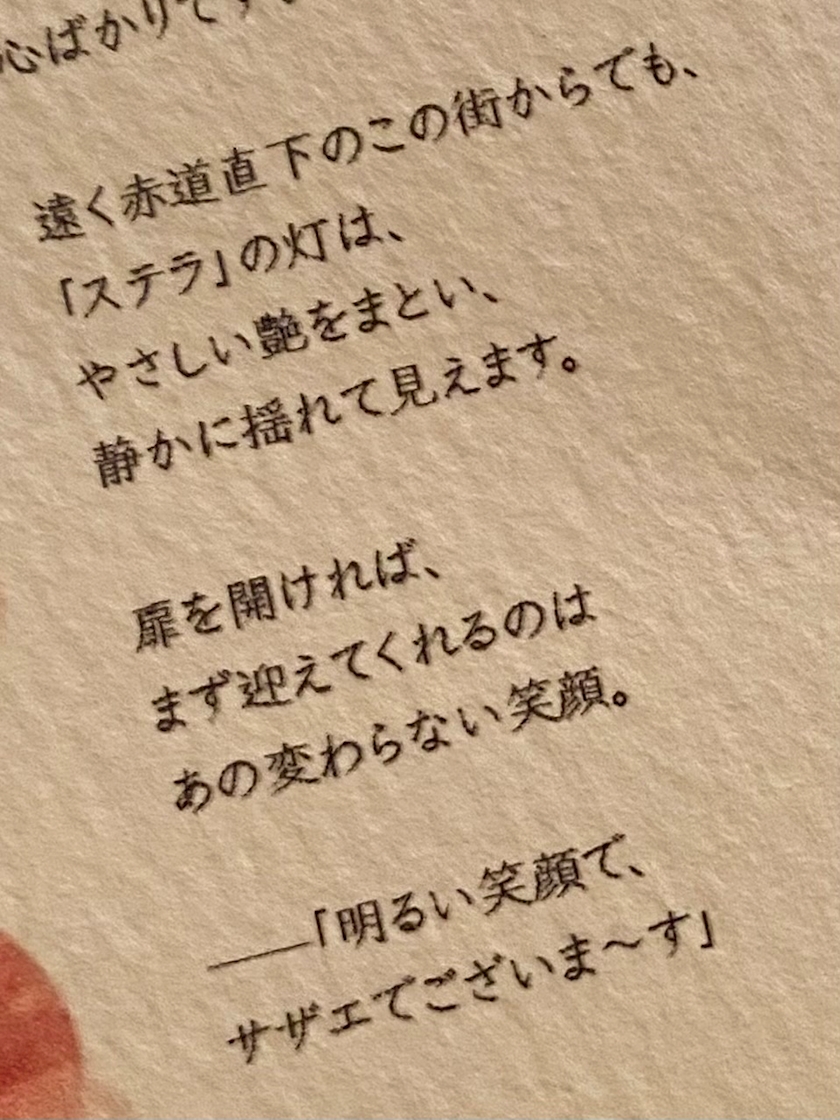 心ばかりです。
遠く赤道直下のこの街からでも、
「ステラ」の灯は、
やさしい艶をまとい、
静かに揺れて見えます。
扉を開ければ、
まず迎えてくれるのは
あの変わらない笑顔。
――「明るい笑顔で、
サザエでございま～す」